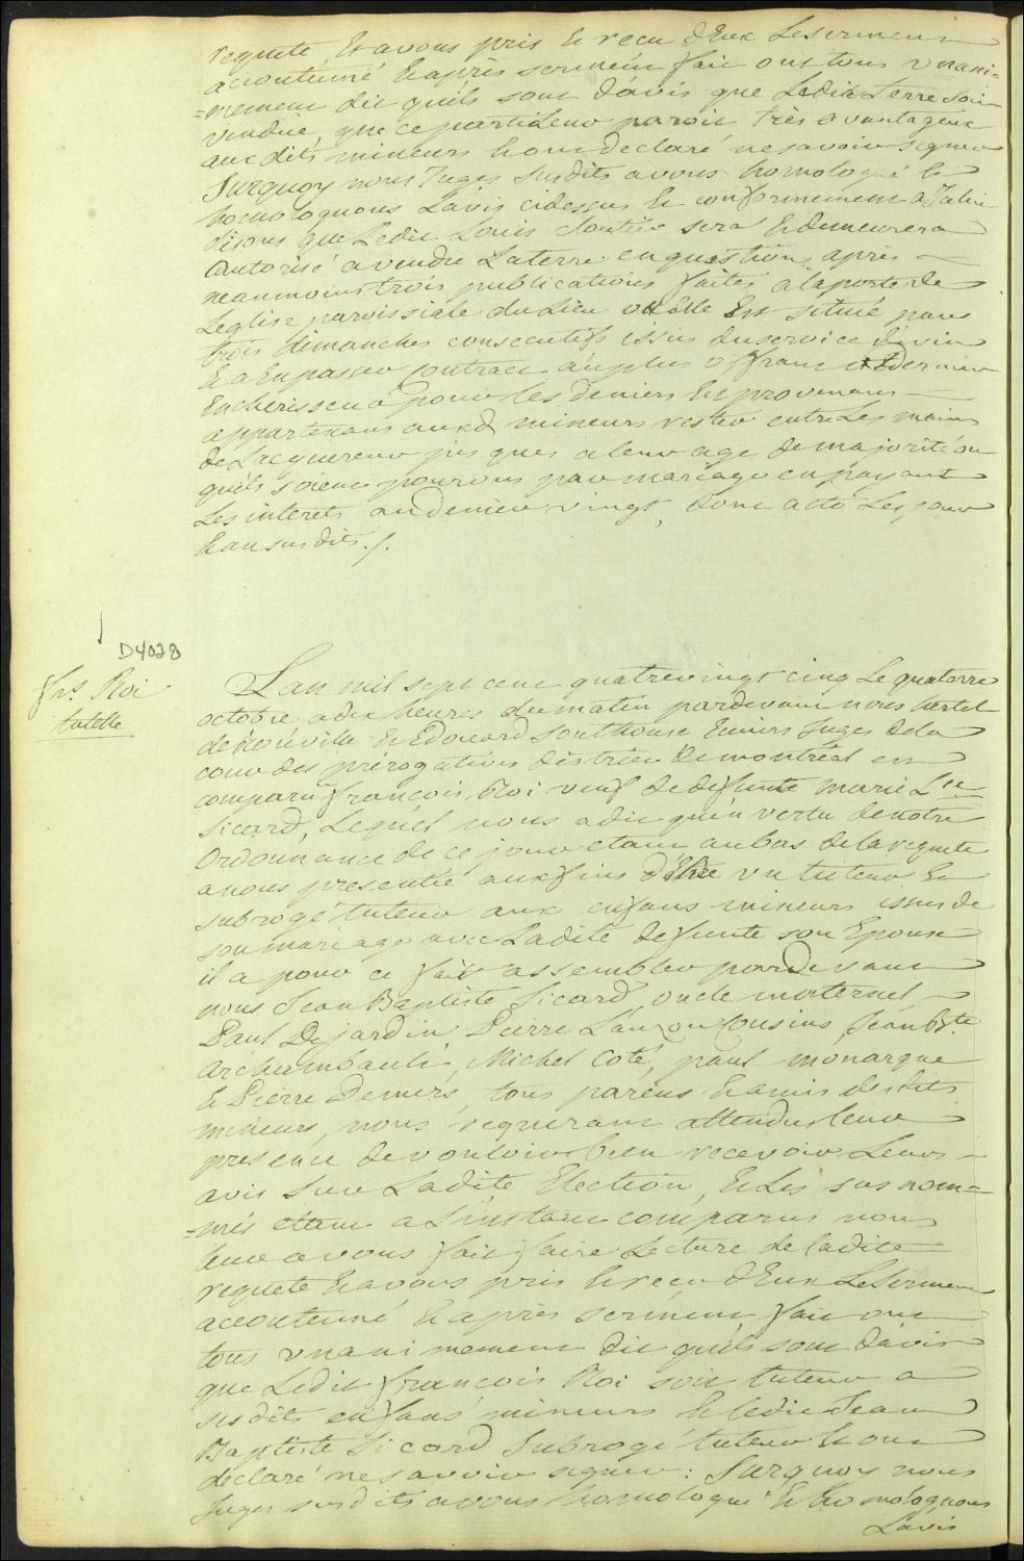 requete, et avons pris et recu d'Eux Le serment
accoutumé et après serment fait ont tous unani=
=mement dit quils sont d'avis que Ladite Terre soit
vendue, que ce parti Leur paroit très avantageux
aux dits mineurs et ont declaré ne savoir signer
Surquoy nous Juges susdits avons homologué et
homologuons Lavis cidessus et conformement a Icelui
disons que Ledit Louis sera et demeurera
Autorisé a vendre La terre en question après
neanmoins trois publications faites a la porte de
Leglise paroissiale du Lieu ou Elle Est située par
trois dimanches consecutifs issue du service divin
Et a En passer contract au plus offrant et dernier
Encherisseur pour les deniers En provenans
appartenans auxd mineurs rester entre Les mains
de Lacquereur jusques a leur age de majorité ou
quils soient pourvus par mariage en payant
Les interets au denier vingt, dont acte Les jour
et an susdits ./.
D4028
frs Roi
tutelle
Lan mil sept cent quatrevingt cinq Le quatorze
octobre a dix heures du matin pardevant nous hertel
de Rouville et Edouard Southouse Ecuiers Juges de la
cour des prérogatives district de montréal est
comparu françois Roi veuf de defunte marie Lse
Sicard, Lequel nous a dit quen vertu de notre
Ordonnance de ce jour etant au bas de la requete
a nous presentée aux fins d'élire un tuteur Et
subrogé tuteur aux enfans mineurs issus de
son mariage avec Ladite defunte son Epouse
il a pour ce fait assembler pardevant
nous Jean Baptiste Sicard oncle maternel
Paul Dejardin, Pierre Cousins, Jean Bte
Archambault, Michel Coté, paul monarque
et Pierre Demers, tous parens et amis desdits
mineurs, nous requerant attendu leur
presence de vouloir bien recevoir Leurs
avis sur Ladite Election, et Les sus nom=
=més etant a Linstant comparus nous
leur avons fait faire Lecture de ladite
requete et avons pris et recu d'Eux Le serment
accoutumé et après serment fait ont
tous unanimement dit quils sont d'avis
que Ledit françois Roi soit tuteur a
ses dits enfans mineurs et ledit Jean
Baptiste Sicard Subrogé tuteur et ont
declaré ne savoir signer : Surquoy nous
Juges susdits avons homologué et homologuons
Lavis